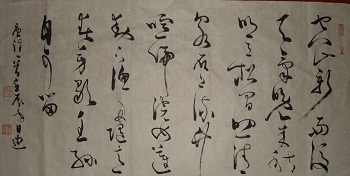 空山新雨後
天氣晚來秋
明月松間照清
泉石上流竹
喧歸浣女蓮
動下漁舟隨意
春芳歇王孫
自可留
唐詩